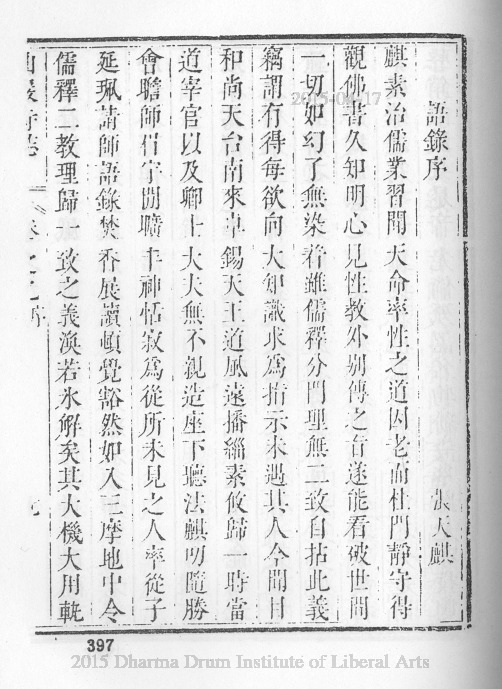 語錄序
張天麒
麒素治儒業習聞天命率性之道因老而杜門靜守得
觀佛書久知明心見性教外別傳之旨遂能看破世間
一切如幻了無染着雖儒釋分門理無二致自拈此義
竊謂有得每欲向大知識求為指示未遇其人今聞日
和尚天台南來卓錫天王道風遠播緇素攸歸一時當
道宰官以及鄉士大夫無不親造座下聽法麒叨隨勝
會瞻師眉宇開曠丰神恬寂為從所未見之人率從子
延珮請師語錄焚香展讀頓覺豁然如入三摩地中令
儒釋二教理歸一致之義渙若氷解矣其大機大用輓
寺志
397
2015 Dharma Drum Institute of Liberal Arts